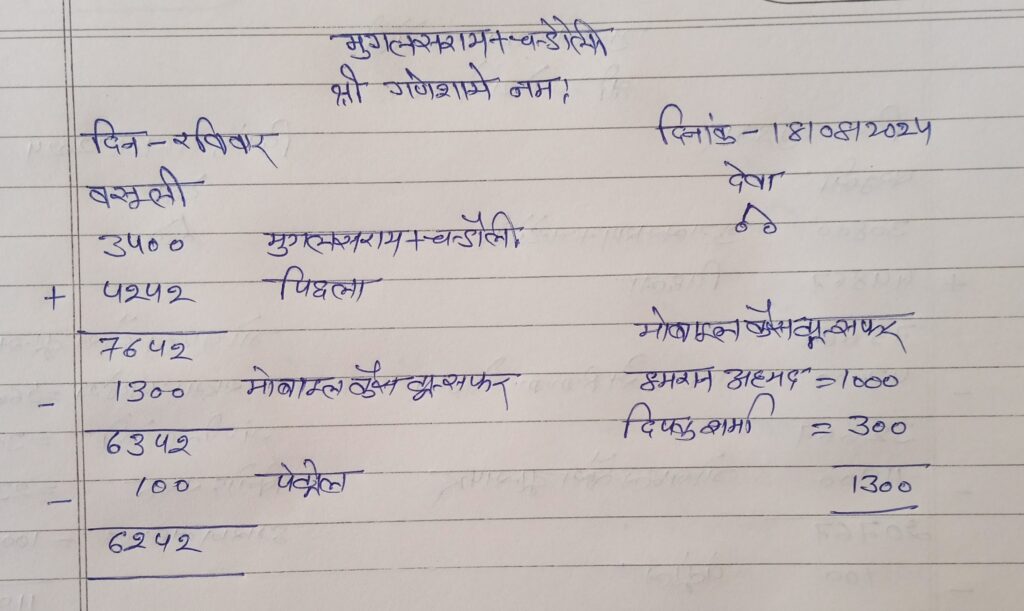 मुगलसराय+चन्डौली
श्री गणेशाये नम:
दिन - रविवार दिनांक - 18/08/2024
बसूली देवा
3400 मुगलसराय+चन्डौली
+ 4242 पिछला
7642 मोबाइल कैस ट्रान्सफर
- 1300 मोबाइल कैस ट्रान्सफर इमरान अहमद = 1000
6342 दिपक शर्मा = 300
- 100 पेट्रोल 1300
6242